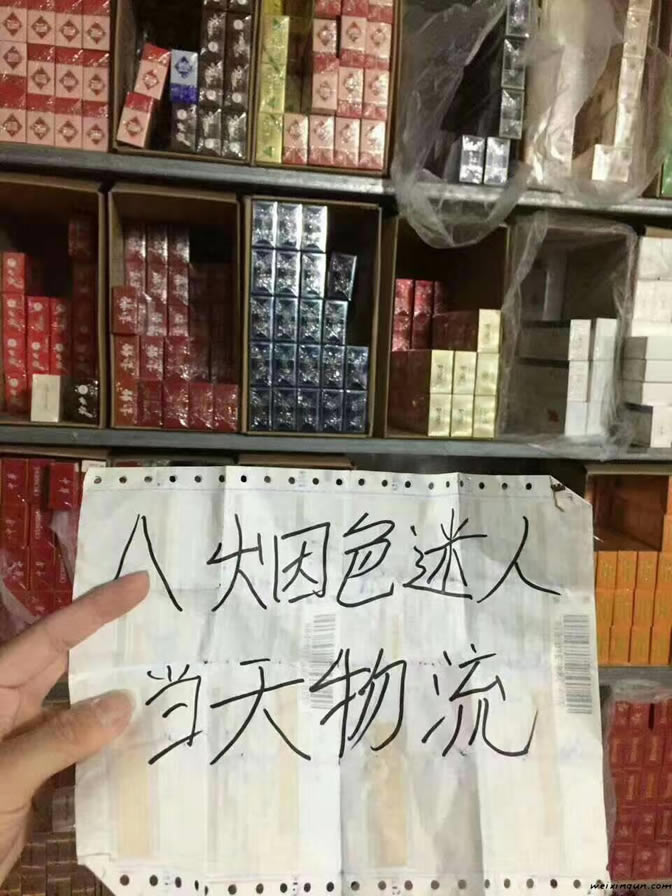 A 烟色迷人
当天物流
weixinqun.com